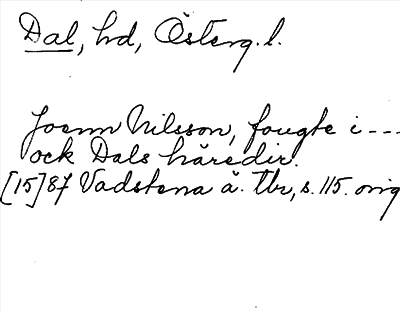 Dal, hd, Österg. l.
Joenn Nilsson, fougte i ---
ock Dals häredir.
[15]87 Vadstena ä. Tbr, s. 115. orig